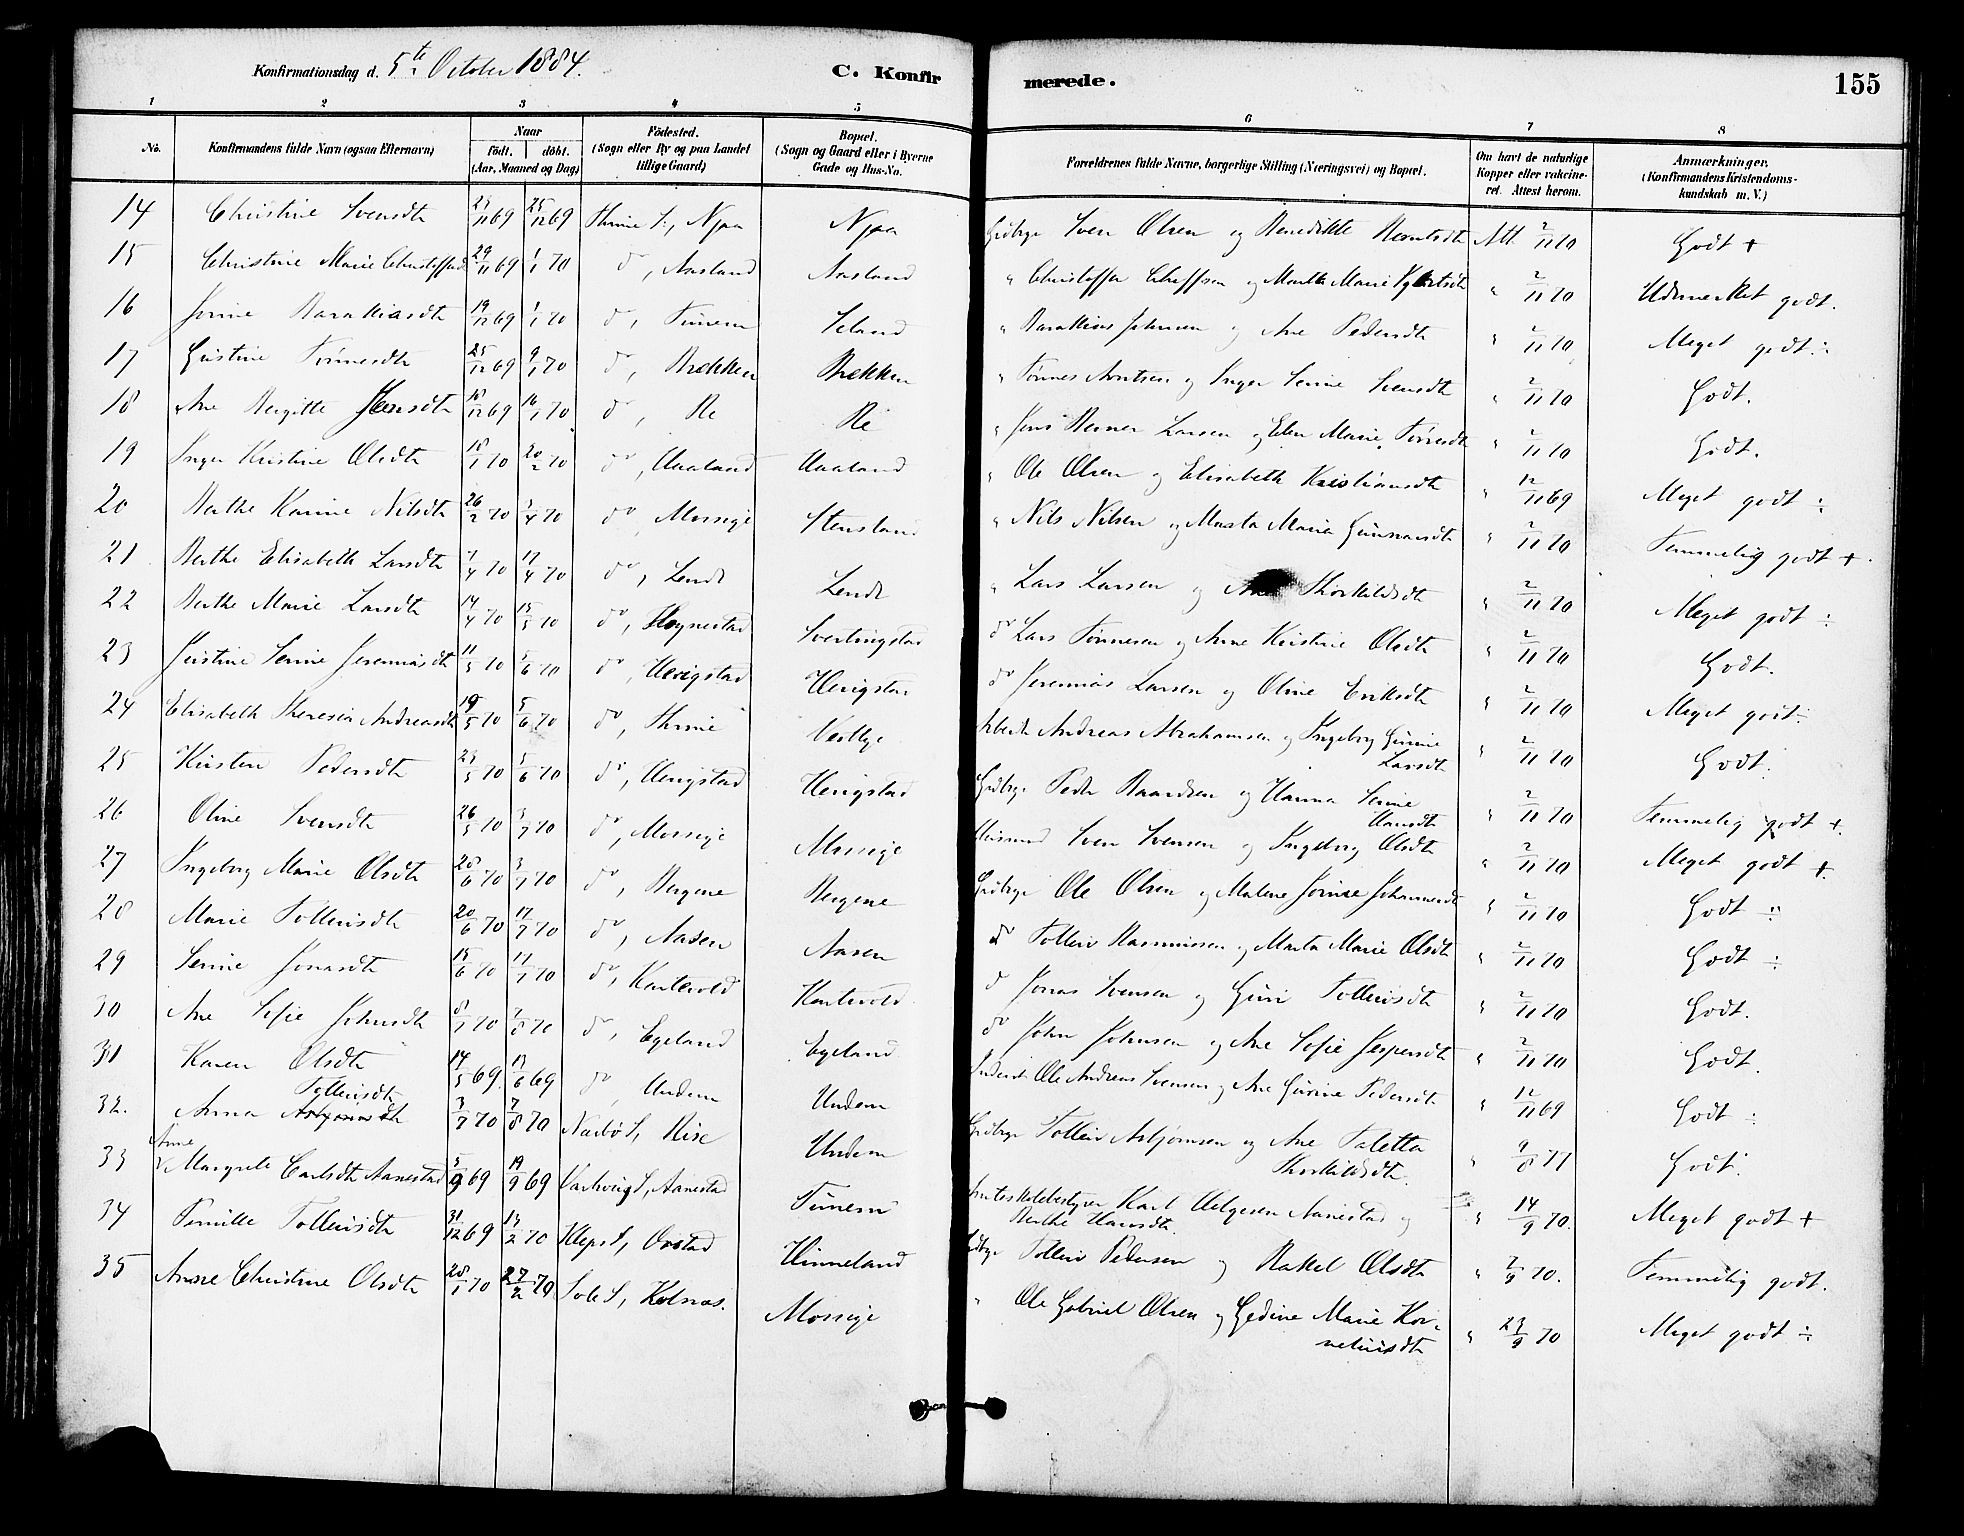 Konfirmationsdag d. 5te October 1884. C. Konfirmerede. 155
1 2 3 4 5 6 7 8
No. Konfirmandens fulde Navn (ogsaa Efternavn) Naar födt. döbt. (Aar, Maaned og Dag) Födested. (Sogn eller By og paa Landet tillige Gaard) Bopæl. (Sogn og Gaard eller i Byerne Gade og Hus-No. Forældrenes fulde Navne, borgerlige Stilling (Næringsvei) og Bopæl. Om havt de naturlige Kopper eller vakcineret. Attest herom. Anmærkninger. (Konfirmandens Kristendomskundskab m. V.)
14 Christine Svensdtr 69 25/12 69 Njaa Njaa Grdbrgr Sven Olsen og Benedikte Berntsdtr Att. 2/11 70 Godt +
15 Christine Marie Christoffsdtr 29/11 69 1/1 70 do, Aasland Aasland " Christoffer and Marie " 2/11 70 Udmerket godt.
16 Jorine Barakiasdtr 19/12 69 1/1 70 do, Tunem Seland " Barakias Johnsen og Ane Pedersdtr " 2/11 70 Meget godt ÷
17 Gustine Tönnesdtr 25/12 69 9/1 70 do, Brekken Brekken " Tönnes Arntsen og Inger Serine Svensdtr " 2/11 70 Godt.
18 Ane Bergitte Jensdtr 18/12 69 16/1 70 do, Re Re " Jens Werner Larsen og Elen Marie " 2/11 70 Godt.
19 Inger Kristine Olsdtr 18/1 70 20/2 70 do, Aaland Aaland " Ole Olsen og Elisabeth Kristiansdtr " 12/11 69 Meget godt ÷
20 Berthe Karine Nilsdtr 26/2 70 3/4 70 do, Mossige Stensland " Nils Nilsen og Marta Maria Gunvarsdtr " 2/11 70 Temmelig godt +.
21 Berthe Elisabeth Larsdtr 7/4 70 17/4 70 do, Lende Lende " Lars Larsen og Thorkildsdtr " 2/11 70 Meget godt ÷
22 Berthe Marie Larsdtr 14/4 70 15/5 70 do, Hognestad Svertingstad do Lars Tönnesen og Anne Kristine Olsdtr " 2/11 70 Godt.
23 Justine Serine Jeremiasdtr 11/5 70 5/6 70 do, Herigstad Herigstad do Jeremias Larsen og Oline Eriksdtr " 2/11 70 Meget godt ÷
24 Elisabeth Theresia Andreasdtr 19/5 70 5/6 70 do, Thime Vestlye Arbeidr Andreas Abrahamsen og Ingeborg Gurine Larsdtr " 2/11 70 Godt.
25 Kirsten Pedersdtr 23/5 70 5/6 70 do, Herigstad Herigstad Grdbrgr Peder Baardsen og Hanna Serine Hansdtr " 2/11 70 Temmelig godt +.
26 Oline Svensdtr 26/5 70 3/7 70 do, Mossige Mossige Husmand Sven Svensen og Ingeborg Olsdtr " 2/11 70 Meget godt +.
27 Ingeborg Marie Olsdtr 28/6 70 3/7 70 do, Bergene Bergene Grdbrgr Ole Olsen og Malene Jorine Johannesdtr " 2/11 70 Godt ÷
28 Marie Tollevsdtr 20/6 70 17/7 70 do, Aasen Aasen do Tollev Rasmussen og Marta Marie Olsdtr " 2/11 70 Godt ÷
29 Serine Jonasdtr 15/6 70 17/7 70 do, Kartevold Kartevold do Jonas Svensen og Guri Tollevsdtr " 2/11 70 Godt.
30 Ane Sofie Johnsdtr 8/7 70 7/8 70 do, Egeland Egeland do John Johnsen og Ane Sofie Jespersdtr " 2/11 70 Godt.
31 Karen Olsdtr 14/5 69. 13/6 69 do, Undem Undem Ole Andreas Svensen og Ane Gurine Pedersdtr " 12/11 69 Godt ÷
32. Anna Tollevsdtr 3/7 70 7/8 70 Nærbö S, Rise Undem Grdbrgr Tollev Asbjörnsen og Ane Taletta Thorkildsdtr. " 9/8 77 Godt.
33 Anne Margrete Carlsdtr Aanestad 5/9 69 19/9 69 Varhoug S, Aanestad Tunem Amtsskolebestyrer Karl Helgesen Aanestad og Berthe Hansdtr. " 14/9 70. Meget godt +
34 Pernille Tollevsdtr 31/12 69 13/2 70 Klep S, Orstad Hinneland Grdbrgr Tollev Pedersen og Rakel Olsdtr " 2/9 70. Temmelig godt.
35 Anne Christine Olsdtr 28/1 70 27/2 70 Sole S, Kolnæs. Mossige " Ole Gabriel Olsen og Gedine Marie Korneliusdtr " 23/9 70 Meget godt ÷